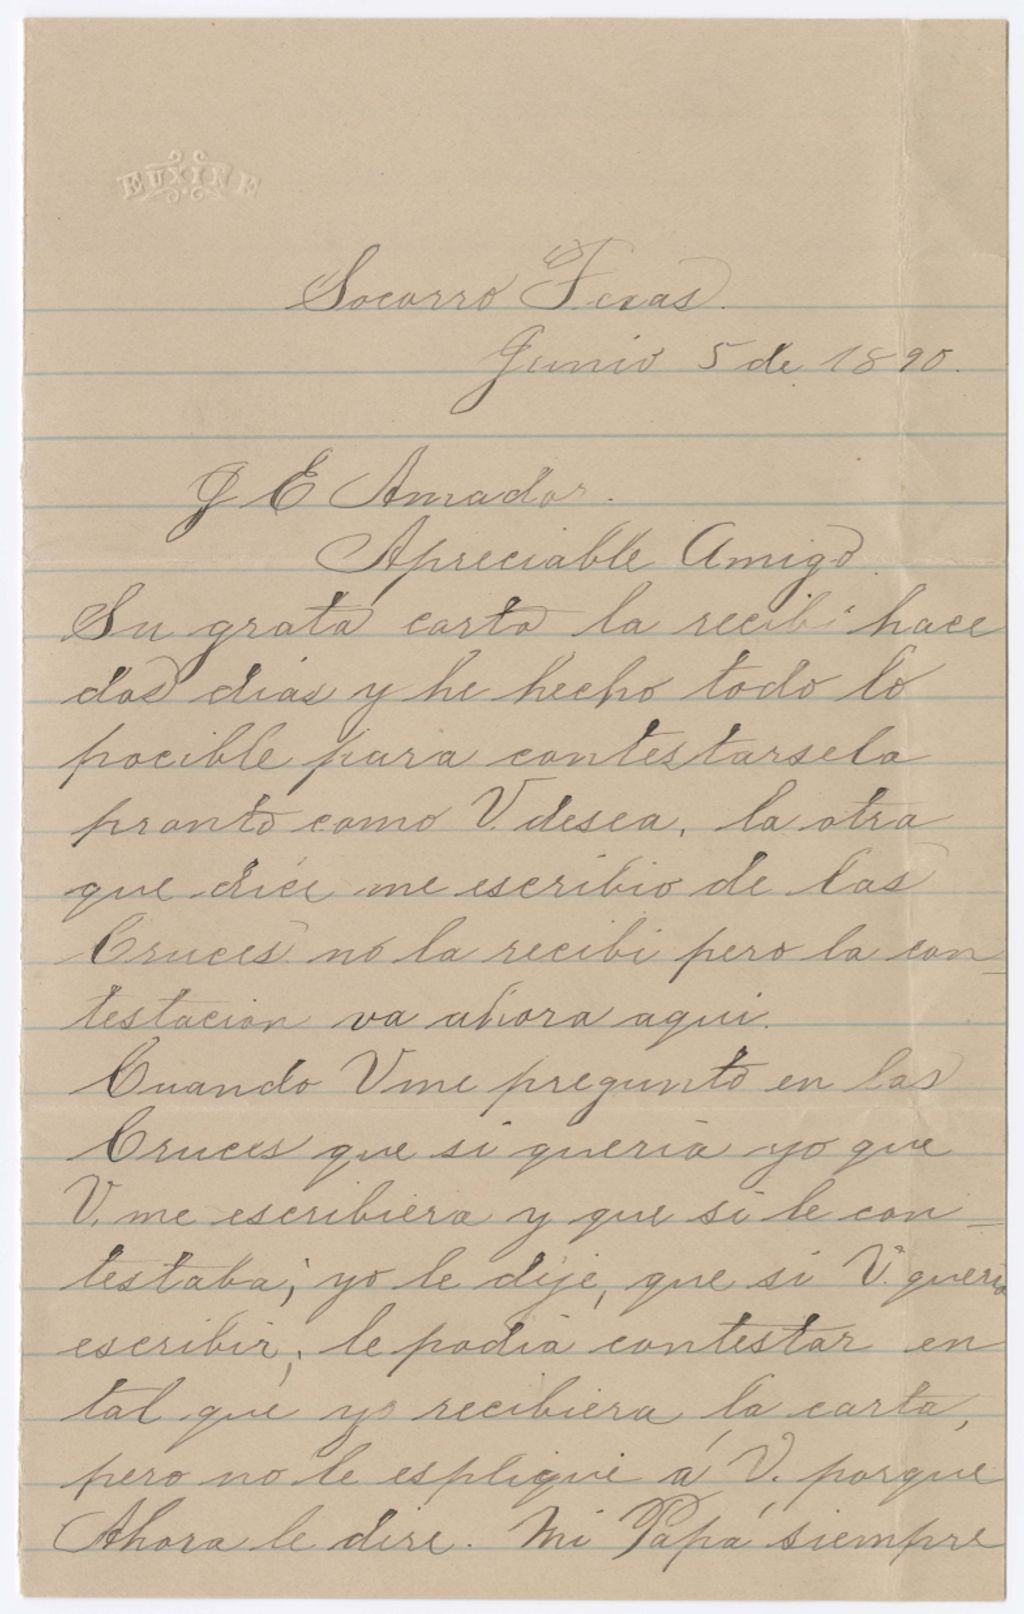 EUXINE
Socorro Texas.
Junio 5 de 1890.
J E Amador.
Apreciable Amigo.
Su grata carta la recibi hace
dos dias y he hecho todo lo
pocible para contestarsela
pronto como V. desea, la otra
que dice me escribio de las
Cruces no la recibi pero la con-
testacion va ahora aqui.
Cuando V me pregunto en las
Cruces que si queria yo que
V. me escribiera y que si le con-
testaba; yo le dije, que si V. queria
escribir, le podia contestar en
tal que yo recibiera la carta,
pero no le esplique á V. porque
Ahora le dire. Mi Papá siempre